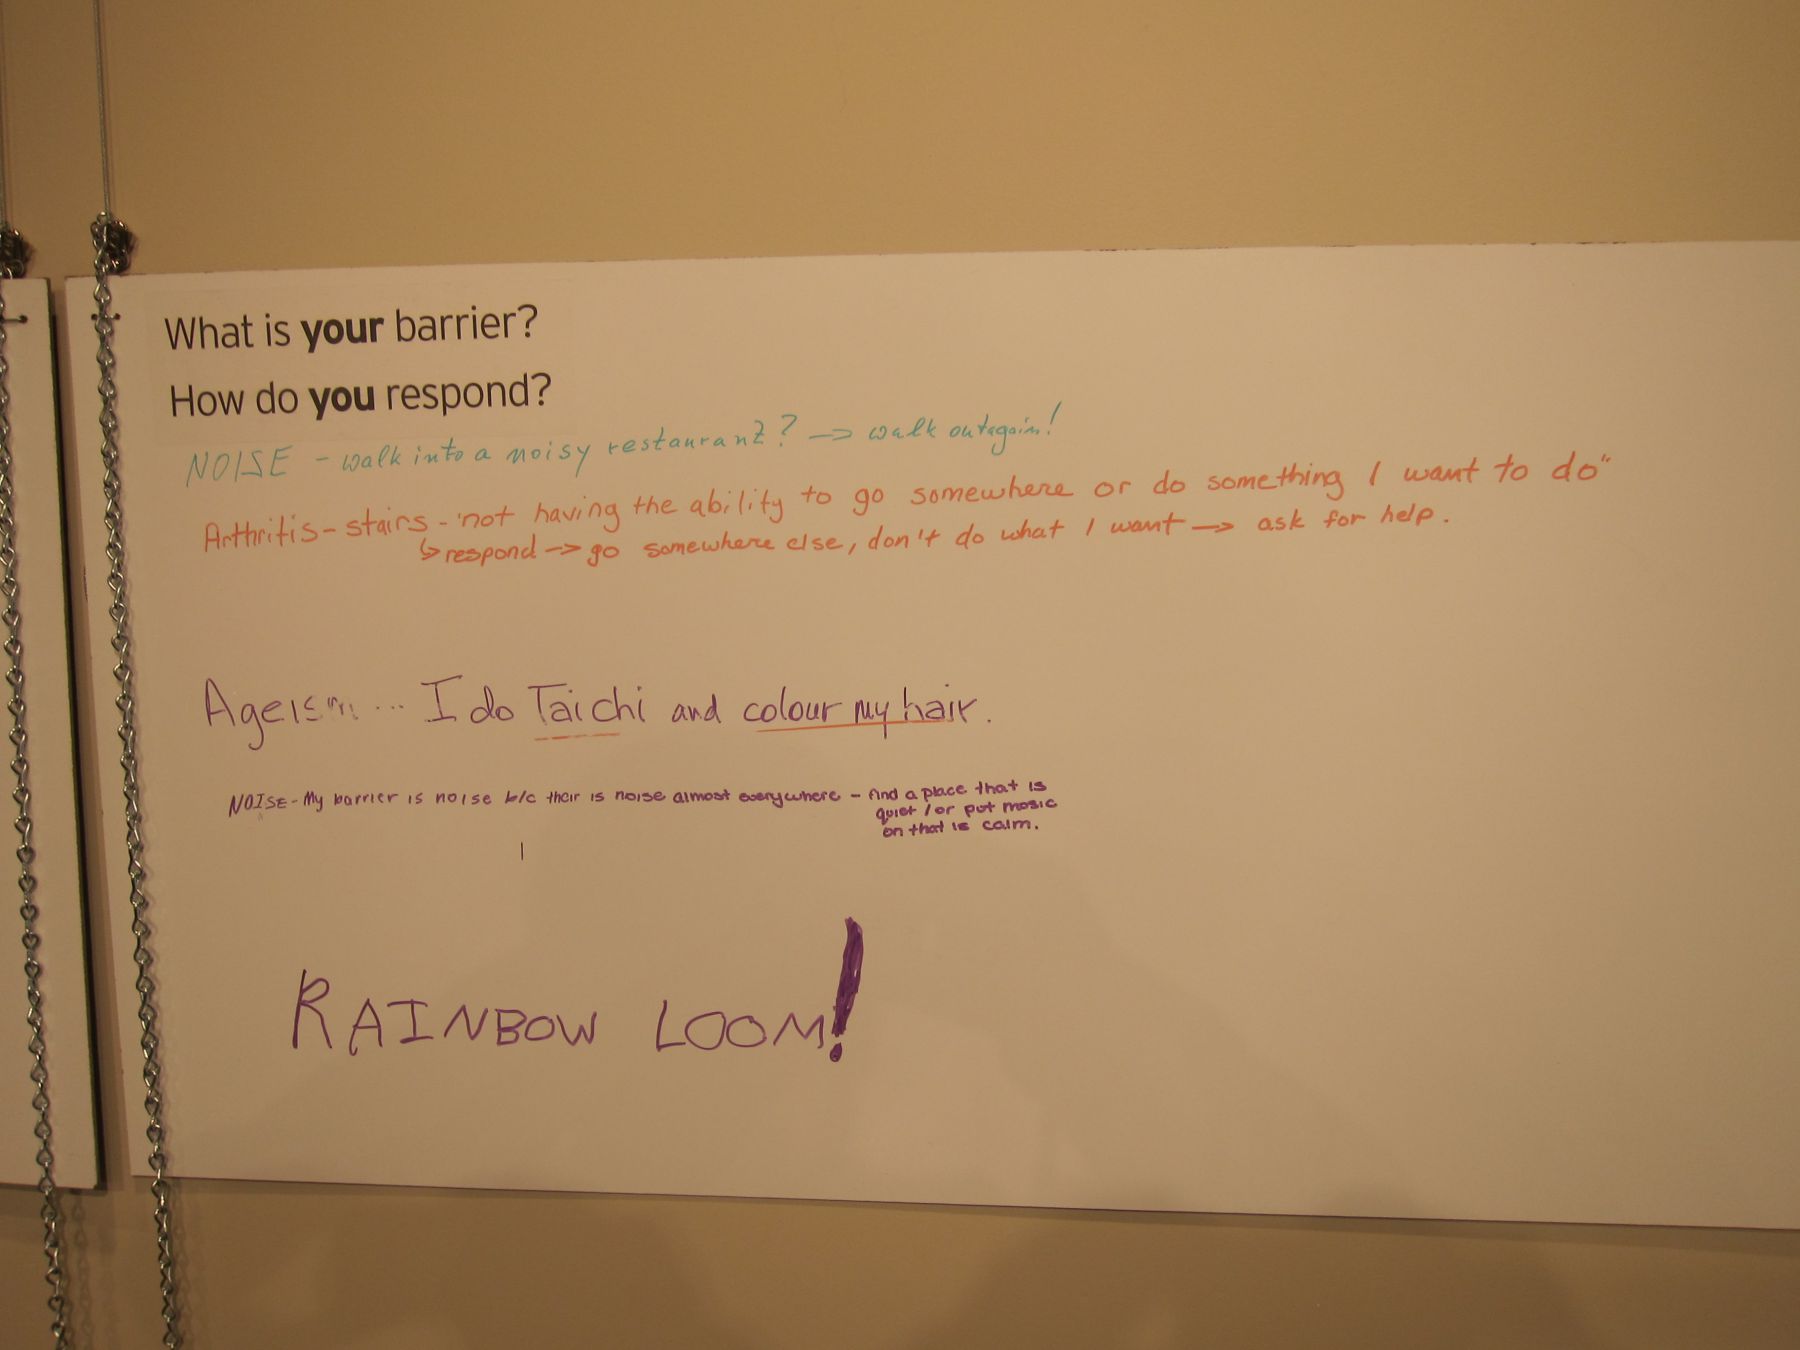 What is your barrier?
How do you respond?
NOISE - walk into a noisy restaurant? → walk out again!
Arthritis - stairs - "not having the ability to go somewhere or do something I want to do"
↳ respond → go somewhere else, don't do what I want → ask for help.
Ageism ... I do Taichi and colour my hair.
NOISE - My barrier is noise b/c their is noise almost everywhere - find a place that is
quiet / or put mosic
on that is calm.
RAINBOW LOOM!